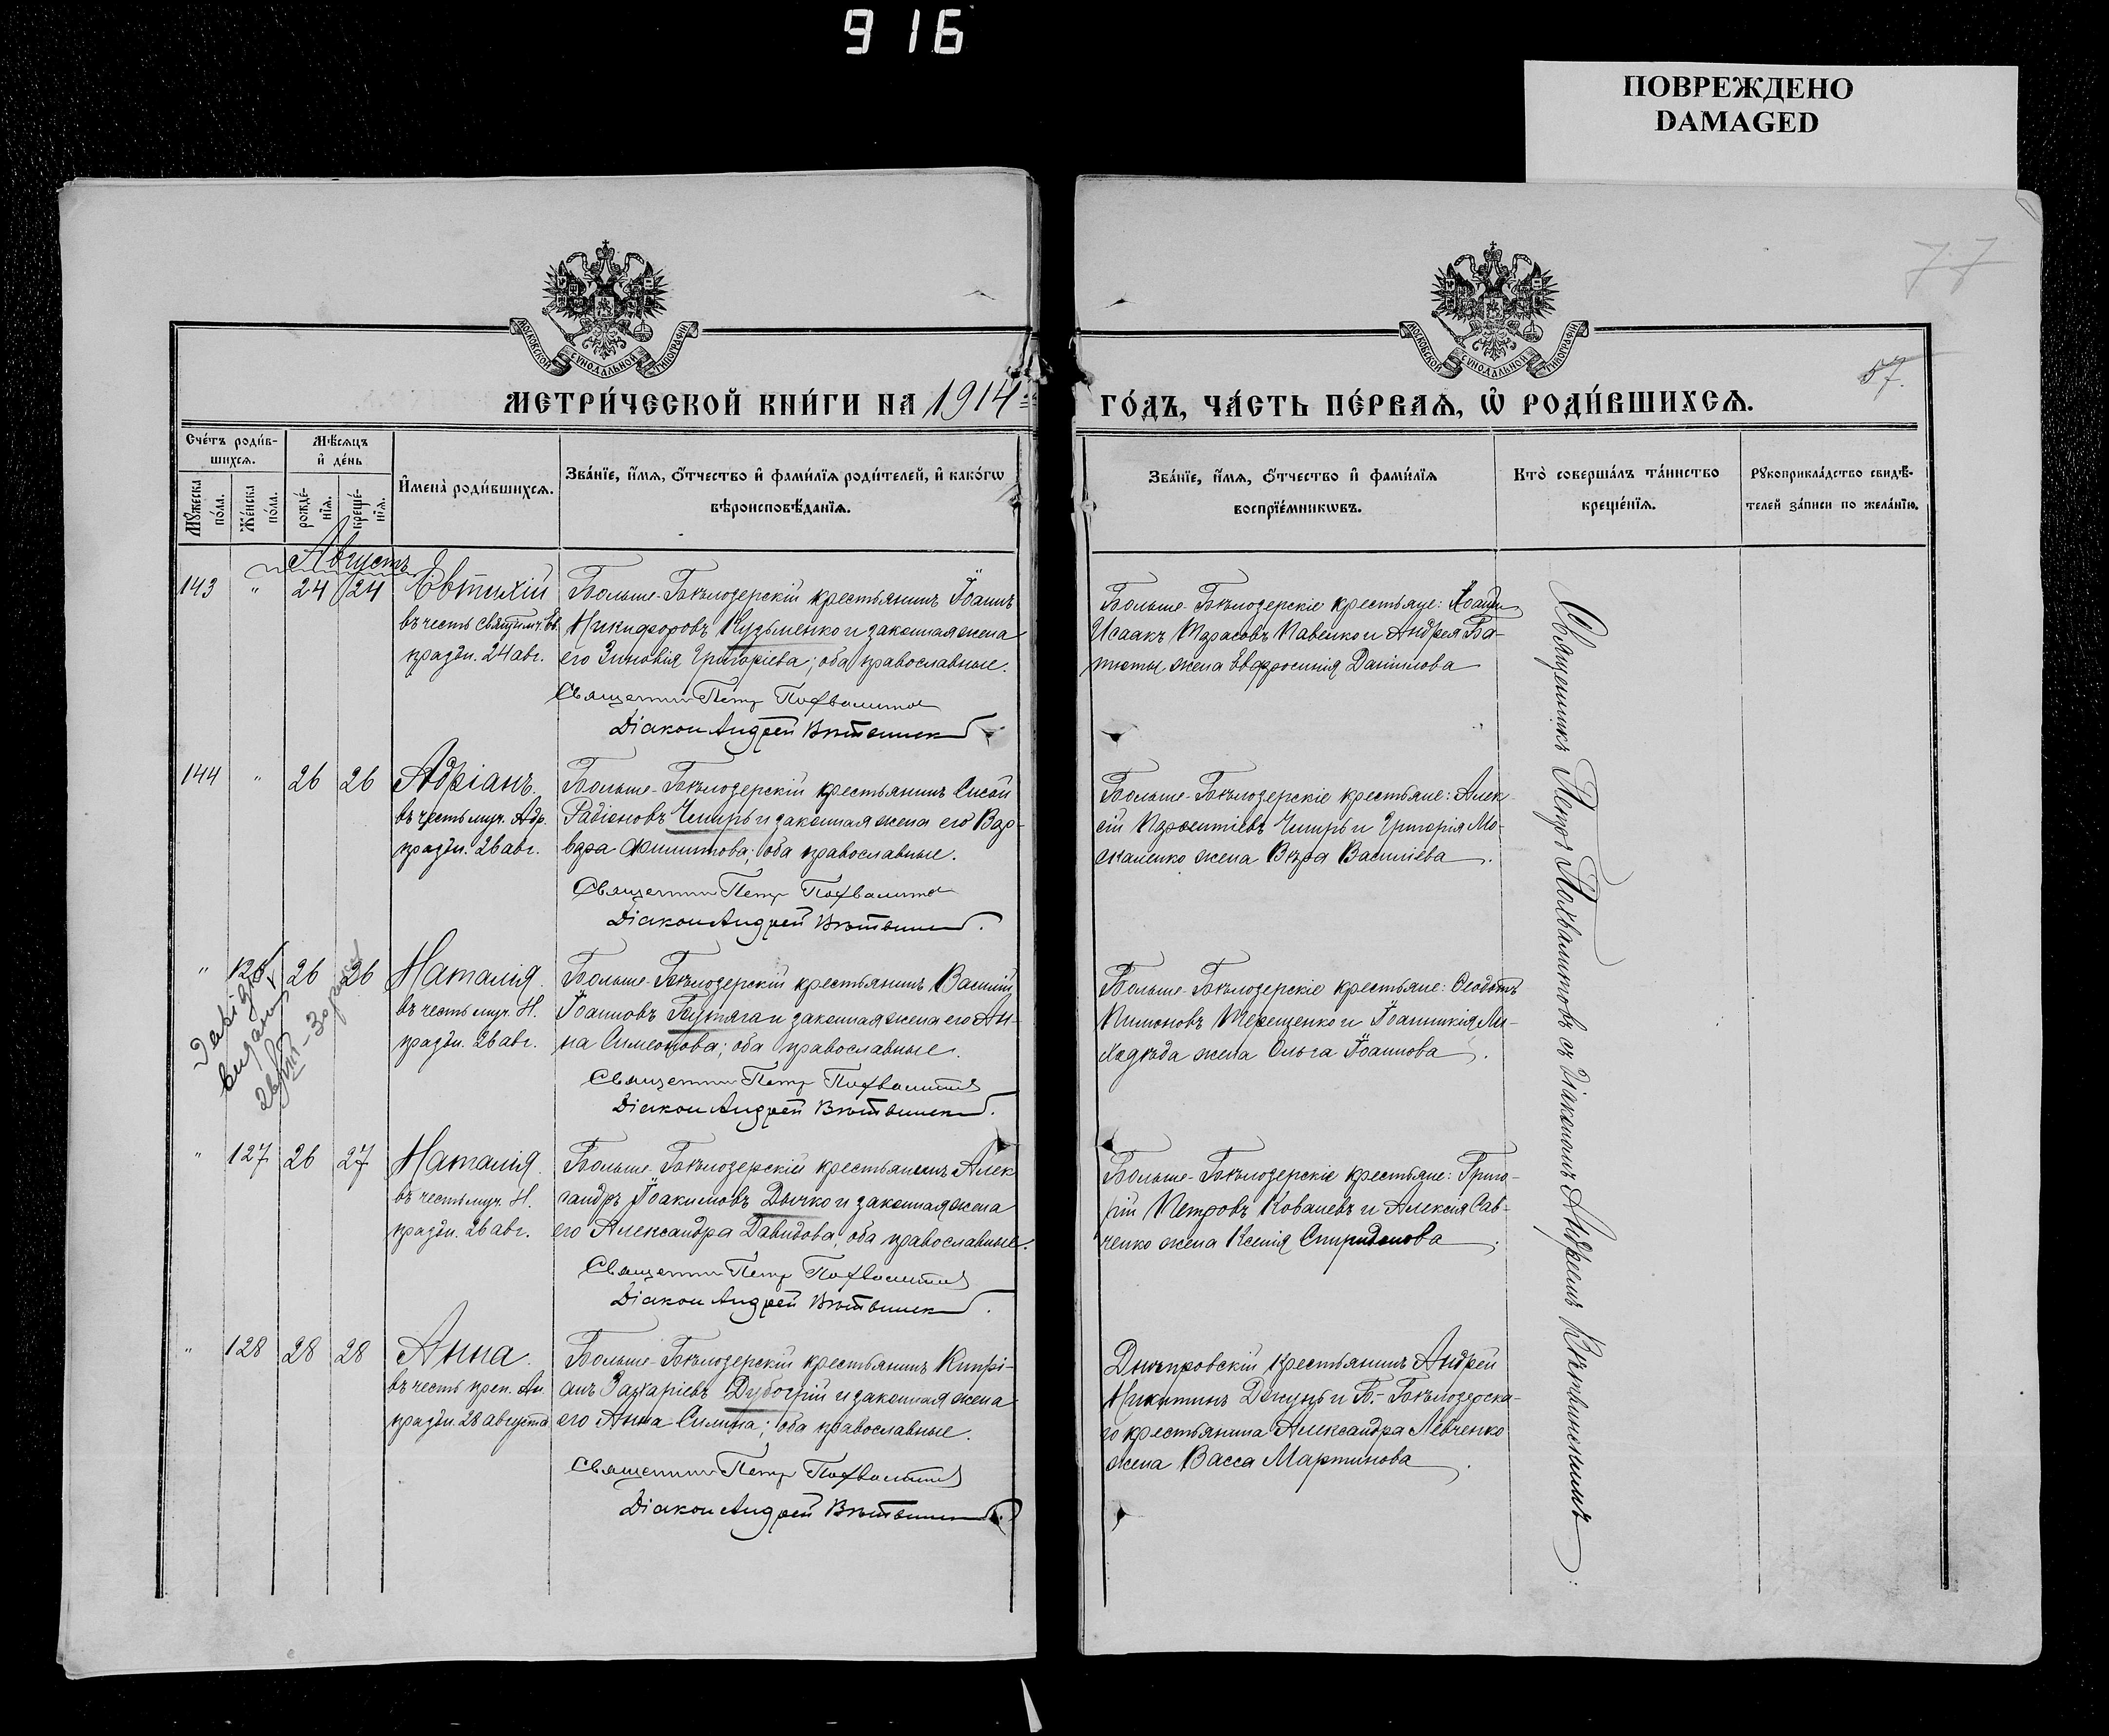 916
ПОВРЕЖДЕНО
DAMAGED
77
МОСКОВСКОЙ СѴНОДАЛЬНОЙ ТИПОГРАФІИ
МОСКОВСКОЙ СѴНОДАЛЬНОЙ ТИПОГРАФІИ
57.
МЕТРИ́ЧЕСКОЙ КНИ́ГИ НА 1914
ГО́ДЪ, ЧА́СТЬ ПЕ́РВАѦ, Ѡ҆ РОДИ́ВШИХСѦ.
Сче́тъ роди́в-
шихсѧ.
Мꙋ́жеска
по́ла.
Же́нска
по́ла.
Мѣ́сѧцъ
и҆ де́нь
рожде́-
нїѧ.
креще́-
нїѧ.
И҆мена̀ роди́вшихсѧ.
Зва́нїе, и҆́мѧ, ѻ҆́тчество и҆ фами́лїѧ роди́телей, и҆ како́гѡ
вѣроисповѣ́данїѧ.
Зва́нїе, и҆́мѧ, ѻ҆́тчество и҆ фами́лїѧ
воспрїе́мникѡвъ.
Кто̀ соверша́лъ та́инство
креще́нїѧ.
Рꙋкоприкла́дство свидѣ́-
телей за́писи по жела́нїю.
Августъ
143 " 24 24 Евтихій
въ честь священномуч. Ев.
праздн. 24 авг.
Больше-Бѣлозерскій крестьянинъ Іоаннъ
Никифоровъ Кузьменко и законная жена
его Зиновія Григоріева; оба православные.
Священникъ Петръ Похвалитовъ
Діаконъ Андрей Вѣтвинскій
Больше-Бѣлозерскіе крестьяне:
Исаакъ Тарасовъ Павенко и Андрея Ба-
тюты жена Евфросинія Даніилова
144 " 26 26 Адріанъ.
въ честь муч. Адр.
праздн. 26 авг.
Больше-Бѣлозерскій крестьянинъ Сисой
Радіоновъ Чмирь и законная жена его Вар-
вара Филиппова; оба православные.
Священникъ Петръ Похвалитовъ
Діаконъ Андрей Вѣтвинскій.
Больше-Бѣлозерскіе крестьяне: Алек-
сій Парѳентіевъ Чмирь и Григорія Мо-
скаленко жена Вѣра Василіева.
" 26 26 Наталія.
въ честь муч. Н.
праздн. 26 авг.
Больше-Бѣлозерскій крестьянинъ Василій
Іоанновъ Путяга и законная жена его Ан-
на Симеонова; оба православные.
Священникъ Петръ Похвалитовъ
Діаконъ Андрей Вѣтвинскій.
Больше-Бѣлозерскіе крестьяне: Ѳеодотъ
Пимоновъ Терещенко и Іоанникія Ли-
ходѣда жена Ольга Іоаннова.
" 127 26 27 Наталія.
въ честь муч. Н.
праздн. 26 авг.
Больше-Бѣлозерскій крестьянинъ Алек
сандръ Іоакимовъ Дычко и законная жена
его Александра Давидова, оба православные.
Священникъ Петръ Похвалитовъ
Діаконъ Андрей Вѣтвинскій.
Больше-Бѣлозерскіе крестьяне: Григо-
рій Петровъ Ковалевъ и Алексія Сав-
ченко жена Ксенія Спиридонова.
" 128 28 28 Анна.
въ честь преп. Ан.
праздн. 28 августа
Больше-Бѣлозерскій крестьянинъ Кипрі-
анъ Захаріевъ Дубогрій и законная жена
его Анна Силина; оба православные.
Священникъ Петръ Похвалитовъ
Діаконъ Андрей Вѣтвинскій.
Днѣпровскій крестьянинъ Андрей
Никитинъ Джунь и Б.-Бѣлозерска-
го крестьянина Александра Левченко
жена Васса Мартинова.
Священникъ Петръ Похвалитовъ съ діакономъ Андреемъ Вѣтвинскимъ